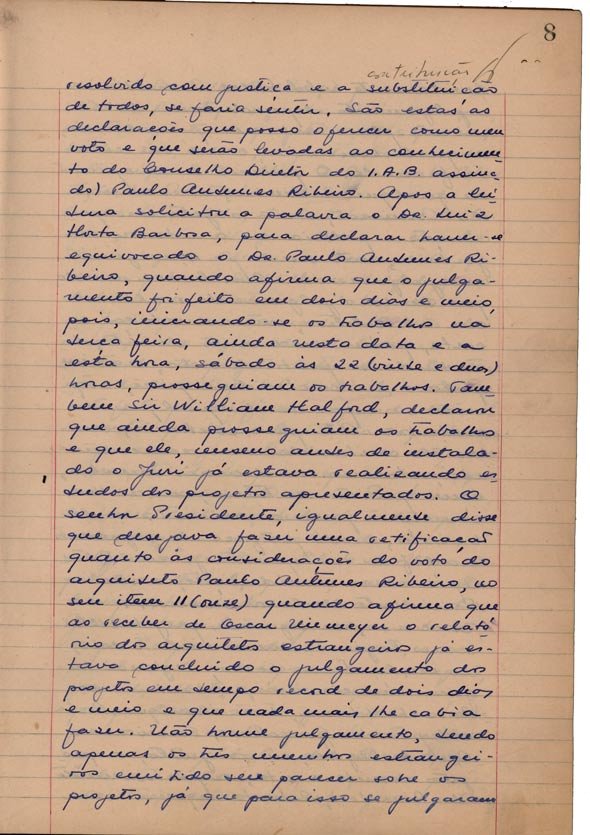 8
contribuição
resolvido com justiça e a substituição
de todos, se faria sentir. São estas as
declarações que posso oferecer como meu
voto e que serão levadas ao conhecimen-
to do Conselho Diretor do I.A.B. assina-
do) Paulo Antunes Ribeiro. Apos a lei-
tura solicitou a palavra o Dr. Luiz
Horta Barbosa, para declarar haver-se
equivocado o Dr. Paulo Antunes Ri-
beiro, quando afirma que o julga-
mento foi feito em dois dias e meio,
pois, iniciando-se os trabalhos na
terça feira, ainda nesta data e a
esta hora, sábado às 22 (vinte e duas)
horas, prosseguiam os trabalhos. Tam-
bem Sir William Halford, declarou
que ainda prosseguiam os trabalhos
e que ele, mesmo antes de instala-
do o Juri já estava realizando es-
tudos dos projetos apresentados. O
senhor Presidente, igualmente disse
que desejava fazer uma retificação
quanto às considerações do voto do
arquiteto Paulo Antunes Ribeiro, no
seu item 11 (onze) quando afirma que
ao receber de Oscar Niemeyer o relató
rio dos arquitetos estrangeiros já es-
tava concluido o julgamento dos
projetos em tempo record de dois dias
e meio e que nada mais lhe cabia
fazer. Não houve julgamento, tendo
apenas os tres membros estrangei-
ros emitido seu parecer sobre os
projetos, já que para isso se julgaram